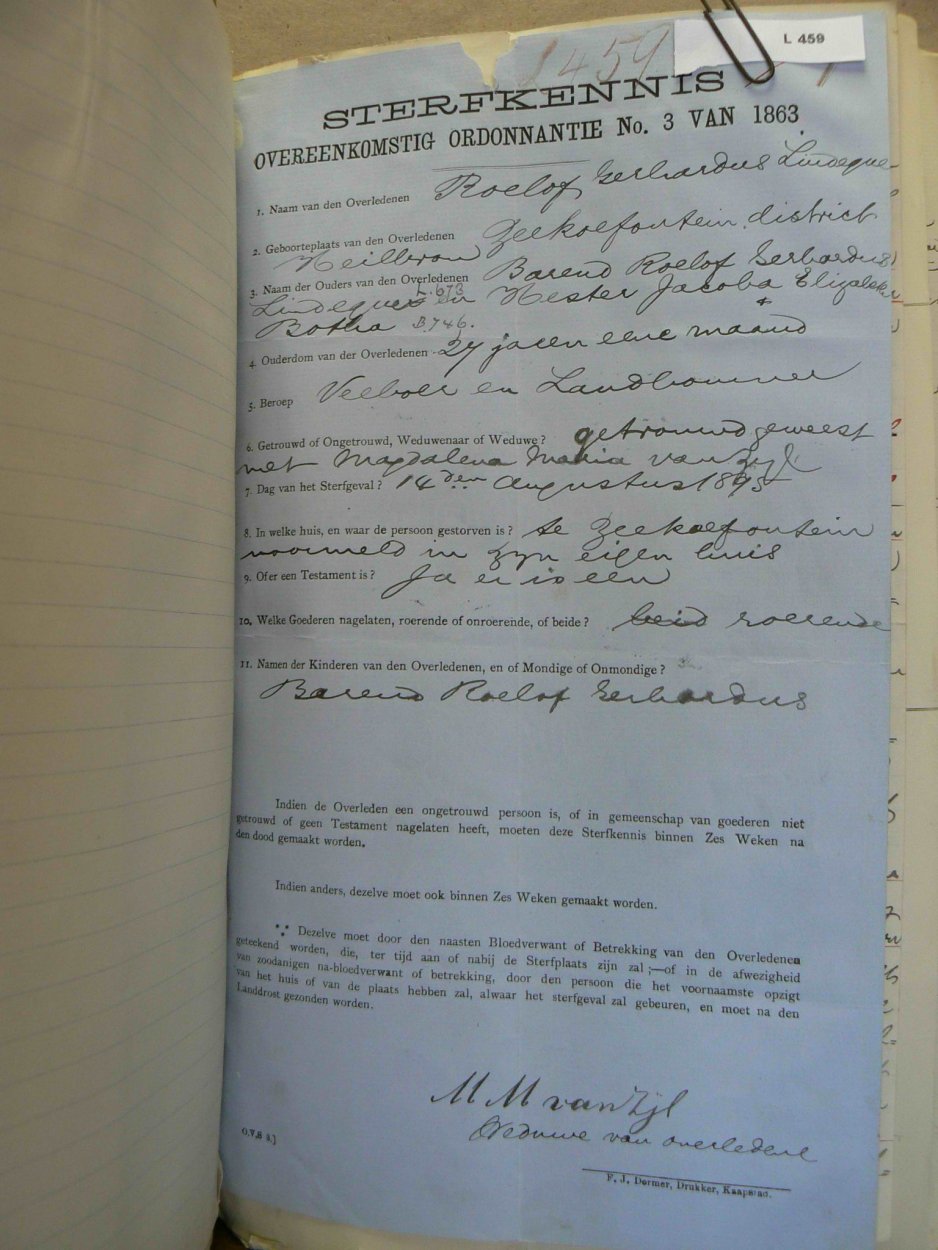 L 459
L 459
STERFKENNIS
OVEREENKOMSTIG ORDONNANTIE No. 3 VAN 1863.
1. Naam van den Overledenen Roelof Gerhardus Lindeque
2. Geboorteplaats van den Overledenen Zeekoefontein district
Heilbron
3. Naam der Ouders van den Overledenen Barend Roelof Gerhardus
L.673
Lindeque en Hester Jacoba Elizabeth
Botha B.746.
4. Ouderdom van der Overledenen 27 jaren eene maand
5. Beroep Veeboer en Landbouwer
6. Getrouwd of Ongetrouwd, Weduwenaar of Weduwe? getrouwd geweest
met Magdalena Maria van Zyl
7. Dag van het Sterfgeval? 14den Augustus 1895
8. In welke huis, en waar de persoon gestorven is? te Zeekoefontein
voormeld in zyn eigen huis
9. Of er een Testament is? Ja er is een
10. Welke Goederen nagelaten, roerende of onroerende, of beide? beid roerende
11. Namen der Kinderen van den Overledenen, en of Mondige of Onmondige?
Barend Roelof Gerhardus
Indien de Overleden een ongetrouwd persoon is, of in gemeenschap van goederen niet
getrouwd of geen Testament nagelaten heeft, moeten deze Sterfkennis binnen Zes Weken na
den dood gemaakt worden.
Indien anders, dezelve moet ook binnen Zes Weken gemaakt worden.
Dezelve moet door den naasten Bloedverwant of Betrekking van den Overledenen
geteekend worden, die, ter tijd aan of nabij de Sterfplaats zijn zal;—of in de afwezigheid
van zoodanigen na-bloedverwant of betrekking, door den persoon die het voornaamste opzigt
van het huis of van de plaats hebben zal, alwaar het sterfgeval zal gebeuren, en moet na den
Landdrost gezonden worden.
M M van Zyl
Weduwe van overledene
O.V.S 3.]
F. J. Dormer, Drukker, Kaapstad.